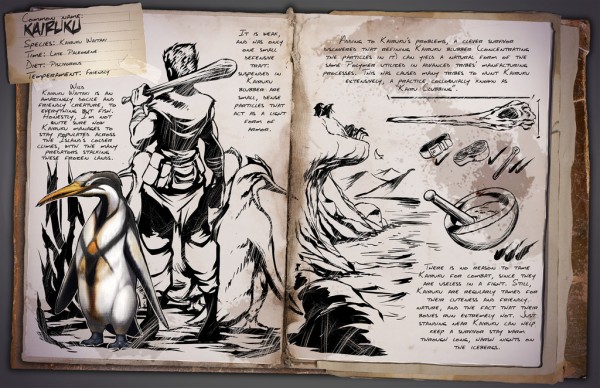 Common Name
KAIRUKU
Species: Kairuku Waitaki
Time: Late Paleogene
Diet: Piscivorous
Temperament: Friendly
Wild
Kairuku Waitaki is an
amazingly docile and
friendly creature, to
everything but fish.
Honestly, I'm not
quite sure how
Kairuku manages to
stay populated across
the Island's colder
climes, with the many
predators stalking
these frozen lands.
It is weak,
and has only
one small
defensive
trait:
suspended in
Kairuku
blubber are
small, dense
particles that
act as a light
form of
armor.
Adding to Kairuku's problems, a clever survivor
discovered that refining Kairuku blubber (concentrating
the particles in it) can yield a natural form of the
same Polymer utilized in advanced tribes' manufacturing
processes. This has caused many tribes to hunt Kairuku
extensively, a practice colloquially known as
"Kairu Clubbing".
There is no reason to tame
Kairuku for combat, since they
are useless in a fight. Still,
Kairuku are regularly tamed for
their cuteness and friendly
nature, and the fact that their
bodies run extremely hot. Just
standing near Kairuku can help
keep a survivor stay warm
through long, harsh nights on
the icebergs.